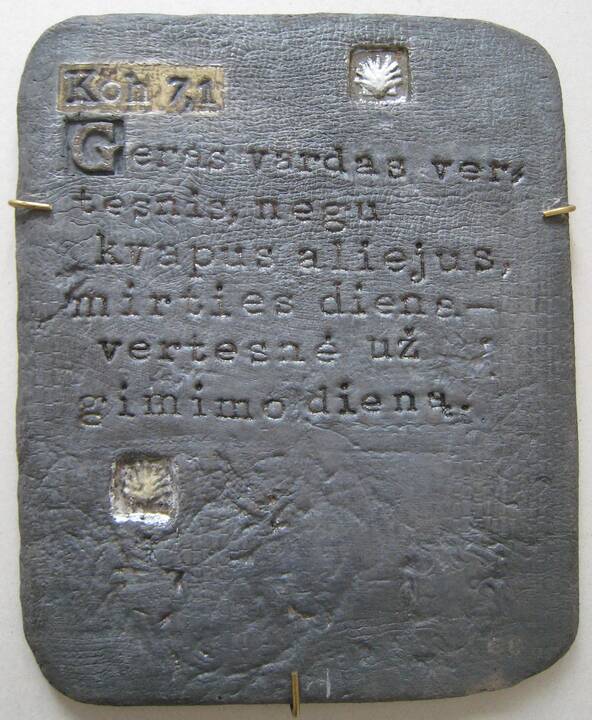 Koh 7,1
Geras vardas ver-
tesnis, negu
kvapus aliejus,
mirties diena—
vertesnė už
gimimo dieną.